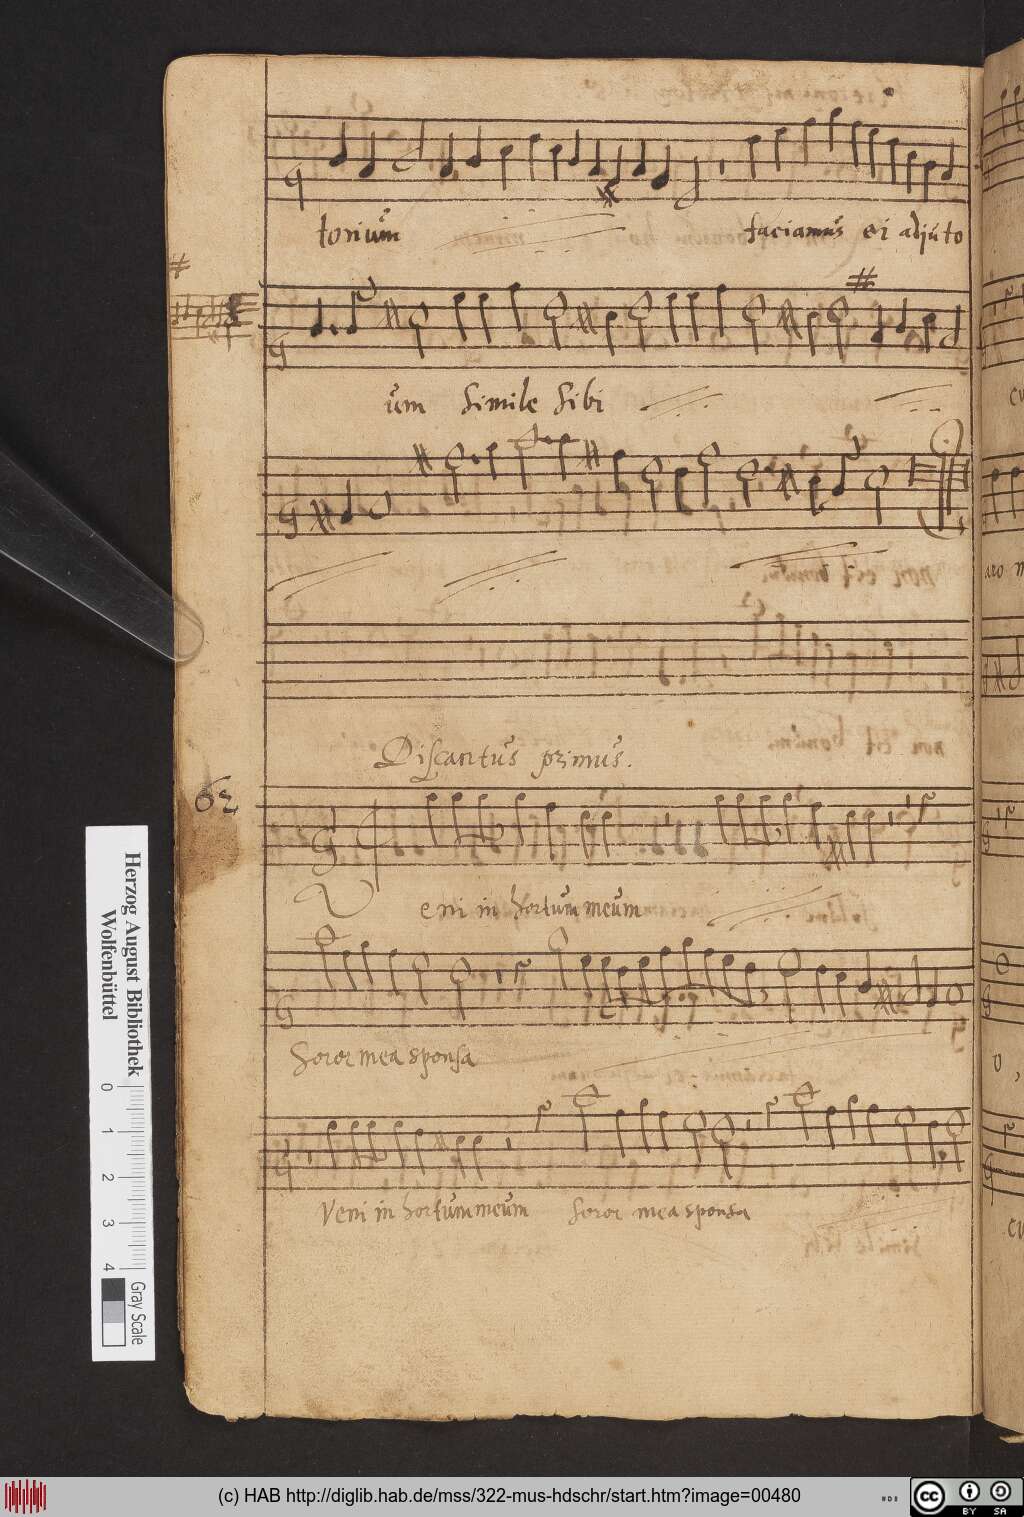 toriũm faciamũs ei adjuto
ũm simile sibi
Discantũs primus.
62
Veni in hortũm meũm
Soror mea sponsa
Veni in hortũm meũm Soror mea sponsa
Herzog August Bibliothek
Wolfenbüttel
0 1 2 3 4
Gray Scale
(c) HAB http://diglib.hab.de/mss/322-mus-hdschr/start.htm?image=00480
cc BY SA